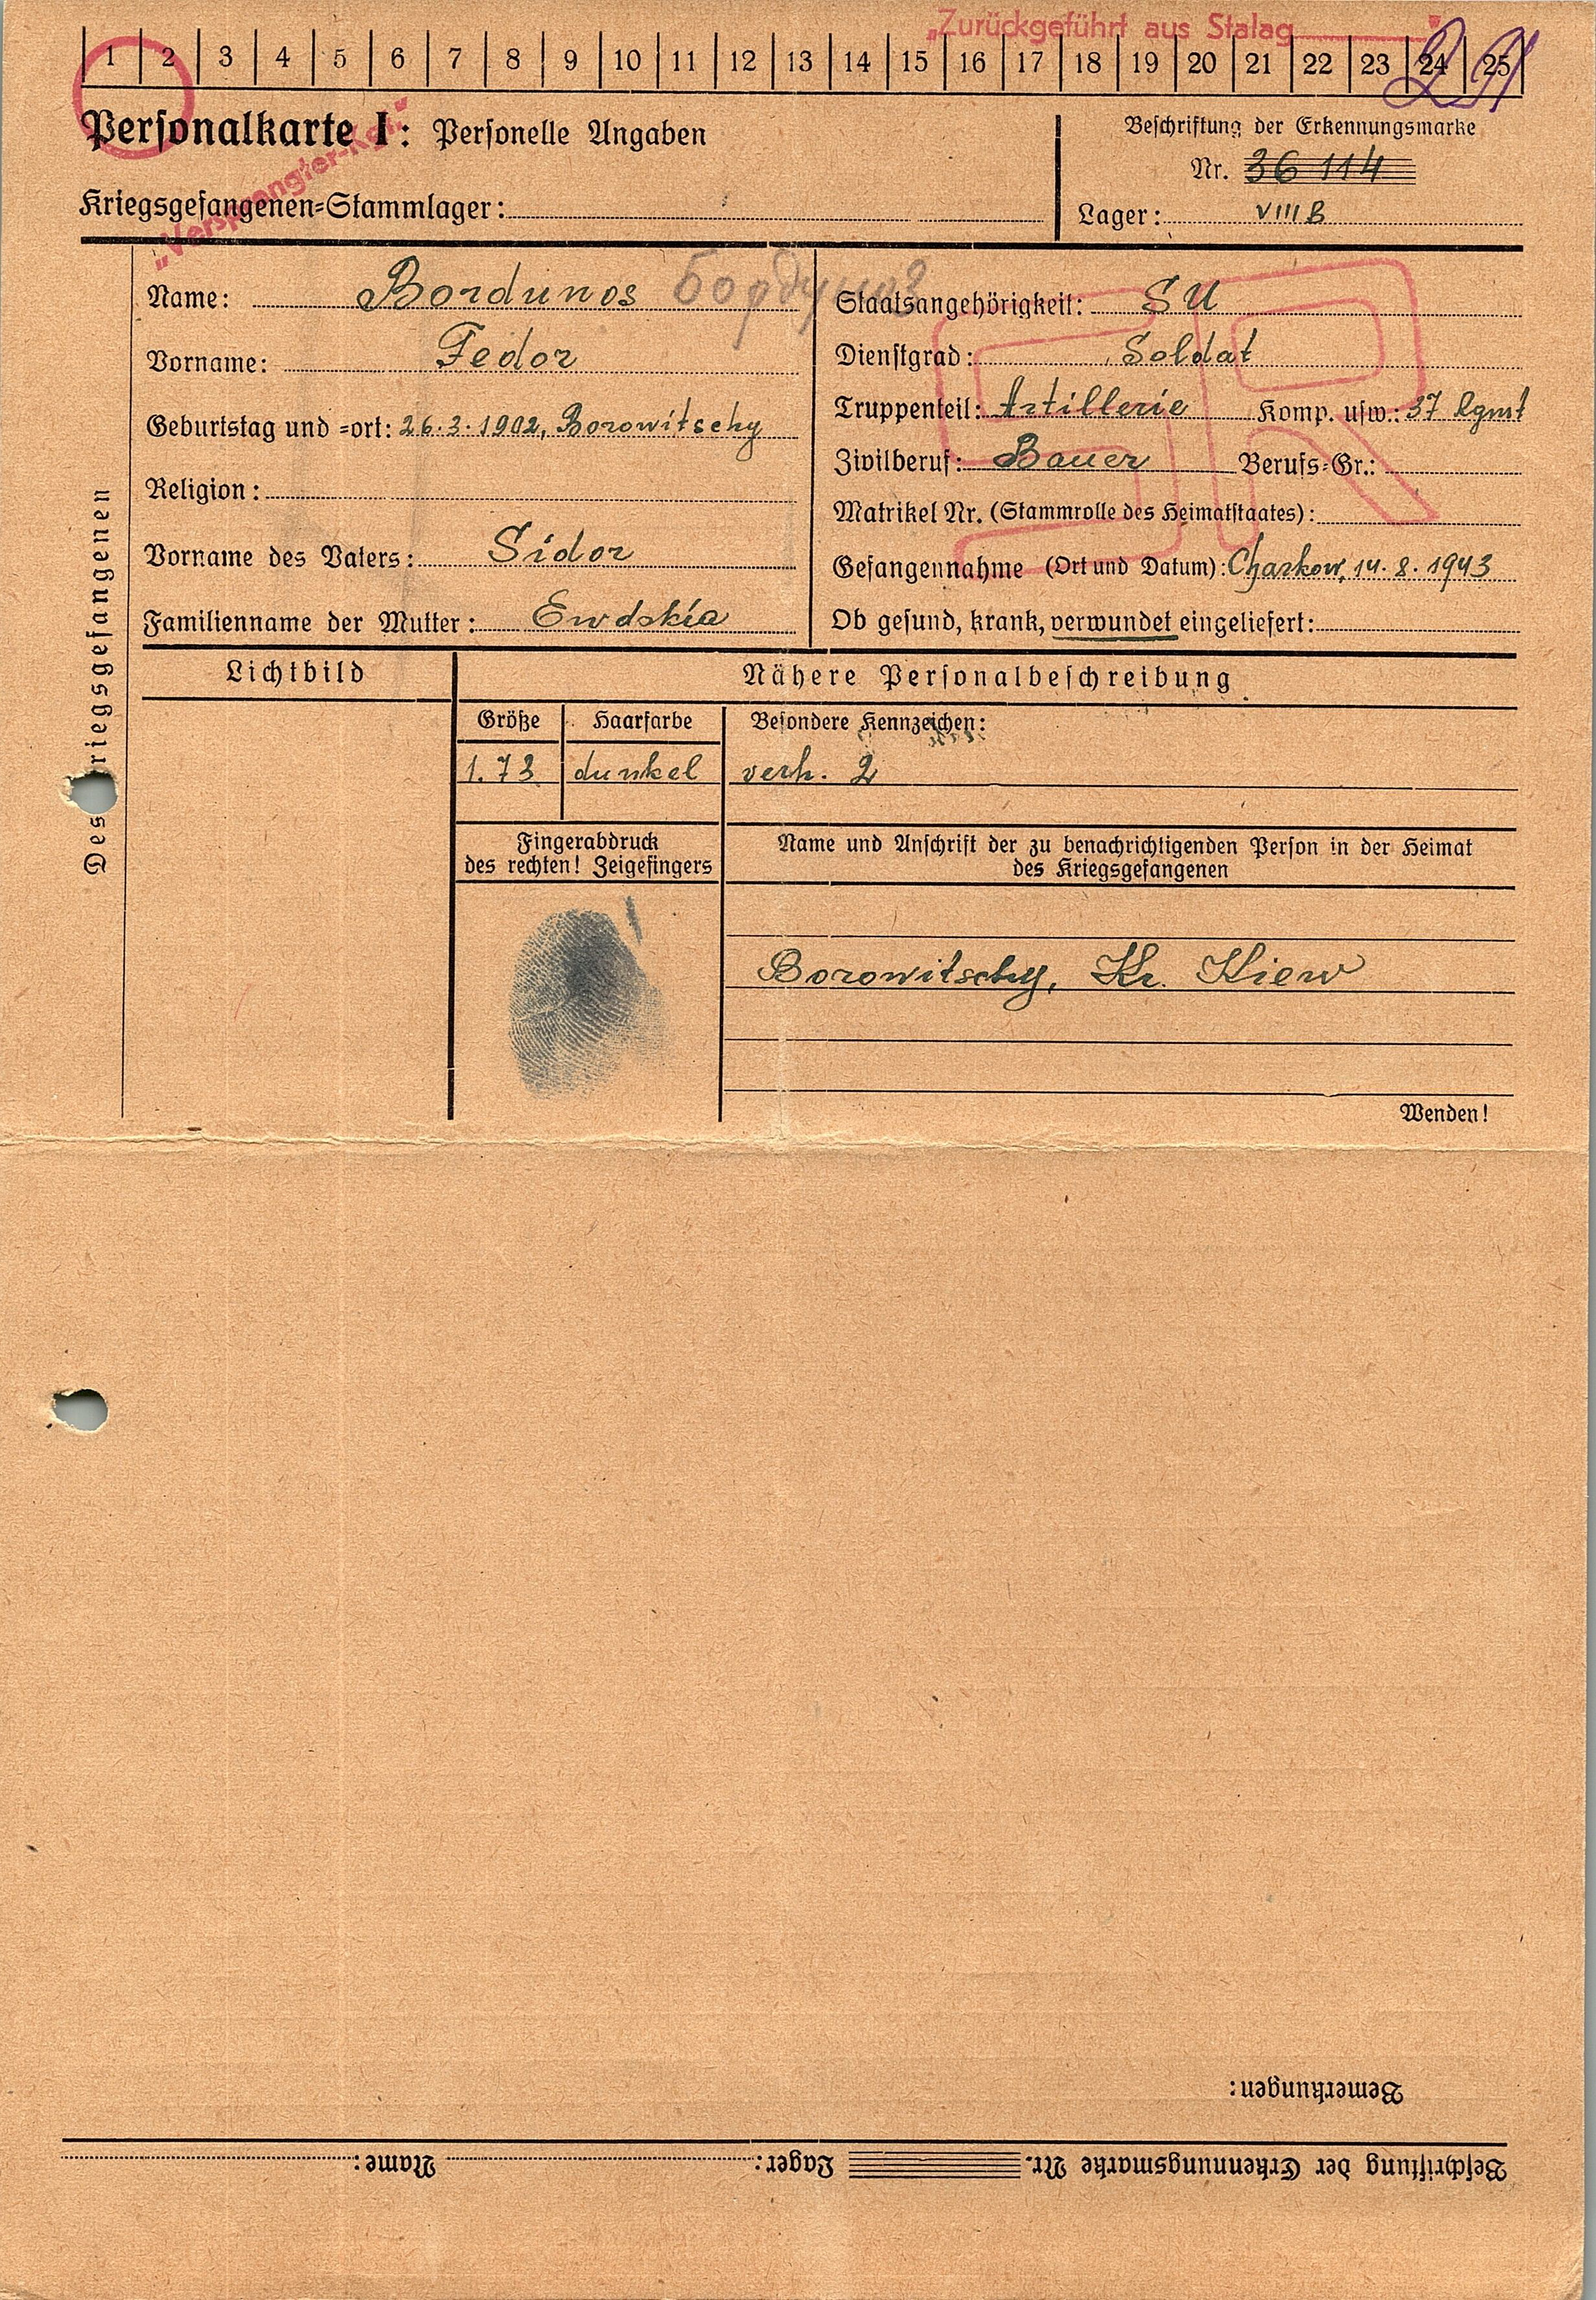 „Zurückgeführt aus Stalag"
1 2 3 4 5 6 7 8 9 10 11 12 13 14 15 16 17 18 19 20 21 22 23 24 25
Personalkarte I: Personelle Angaben
Beschriftung der Erkennungsmarke
Nr. 36 114
„Versprengter-Kgf."
Kriegsgefangenen-Stammlager:
Lager: VIII B
Des Kriegsgefangenen
Name: Bordunos
Vorname: Fedor
Geburtstag und -ort: 26.3.1902, Borowitschy
Religion:
Vorname des Vaters: Sidor
Familienname der Mutter: Ewdokia
Staatsangehörigkeit: SU
Dienstgrad: Soldat
Truppenteil: Artillerie Komp. usw.: 37 Rgmt
Zivilberuf: Bauer Berufs-Gr.:
Matrikel Nr. (Stammrolle des Heimatstaates):
Gefangennahme (Ort und Datum): Charkow, 14.8.1943
Ob gesund, krank, verwundet eingeliefert:
SR
Lichtbild
Nähere Personalbeschreibung
Größe Haarfarbe Besondere Kennzeichen:
1.73 dunkel verh. 2
Fingerabdruck
des rechten! Zeigefingers
Name und Anschrift der zu benachrichtigenden Person in der Heimat
des Kriegsgefangenen
Borowitschy, Kr. Kiew
Wenden!
Bemerkungen:
Beschriftung der Erkennungsmarke Nr. Lager: Name: